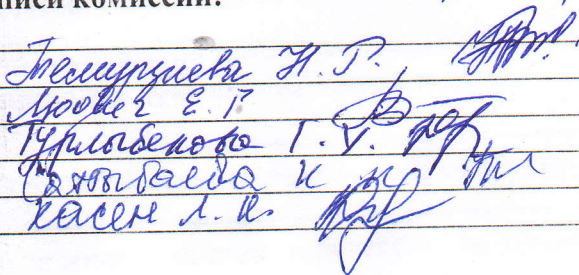 писи комиссии:
Темирциева Н. Г.
Е. Г
Турлыбекова Г. У.
Сатыбаева К К
Касен Л. К.